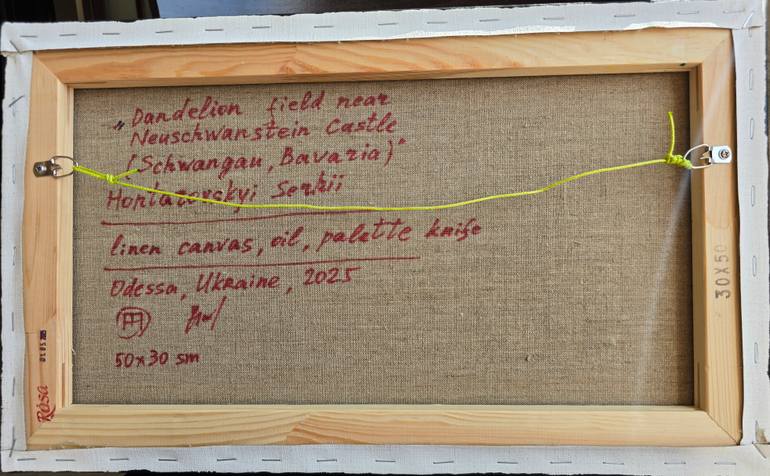 "Dandelion field near
Neuschwanstein Castle
(Schwangau, Bavaria)"
Hontarovskyi Serhii
linen canvas, oil, palette knife
Odessa, Ukraine, 2025
50x30 sm
30X50
Rosa